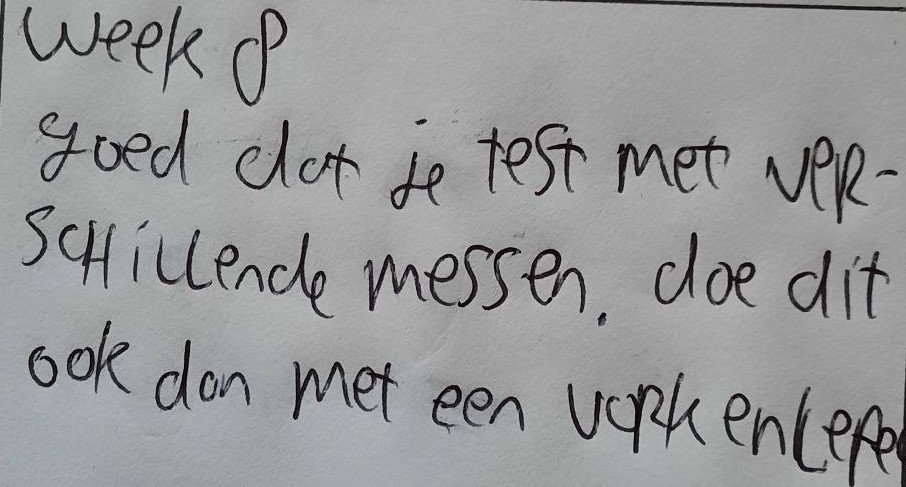 week 8
goed dat je test met ver-
schillende messen. doe dit
ook dan met een vork en lepel